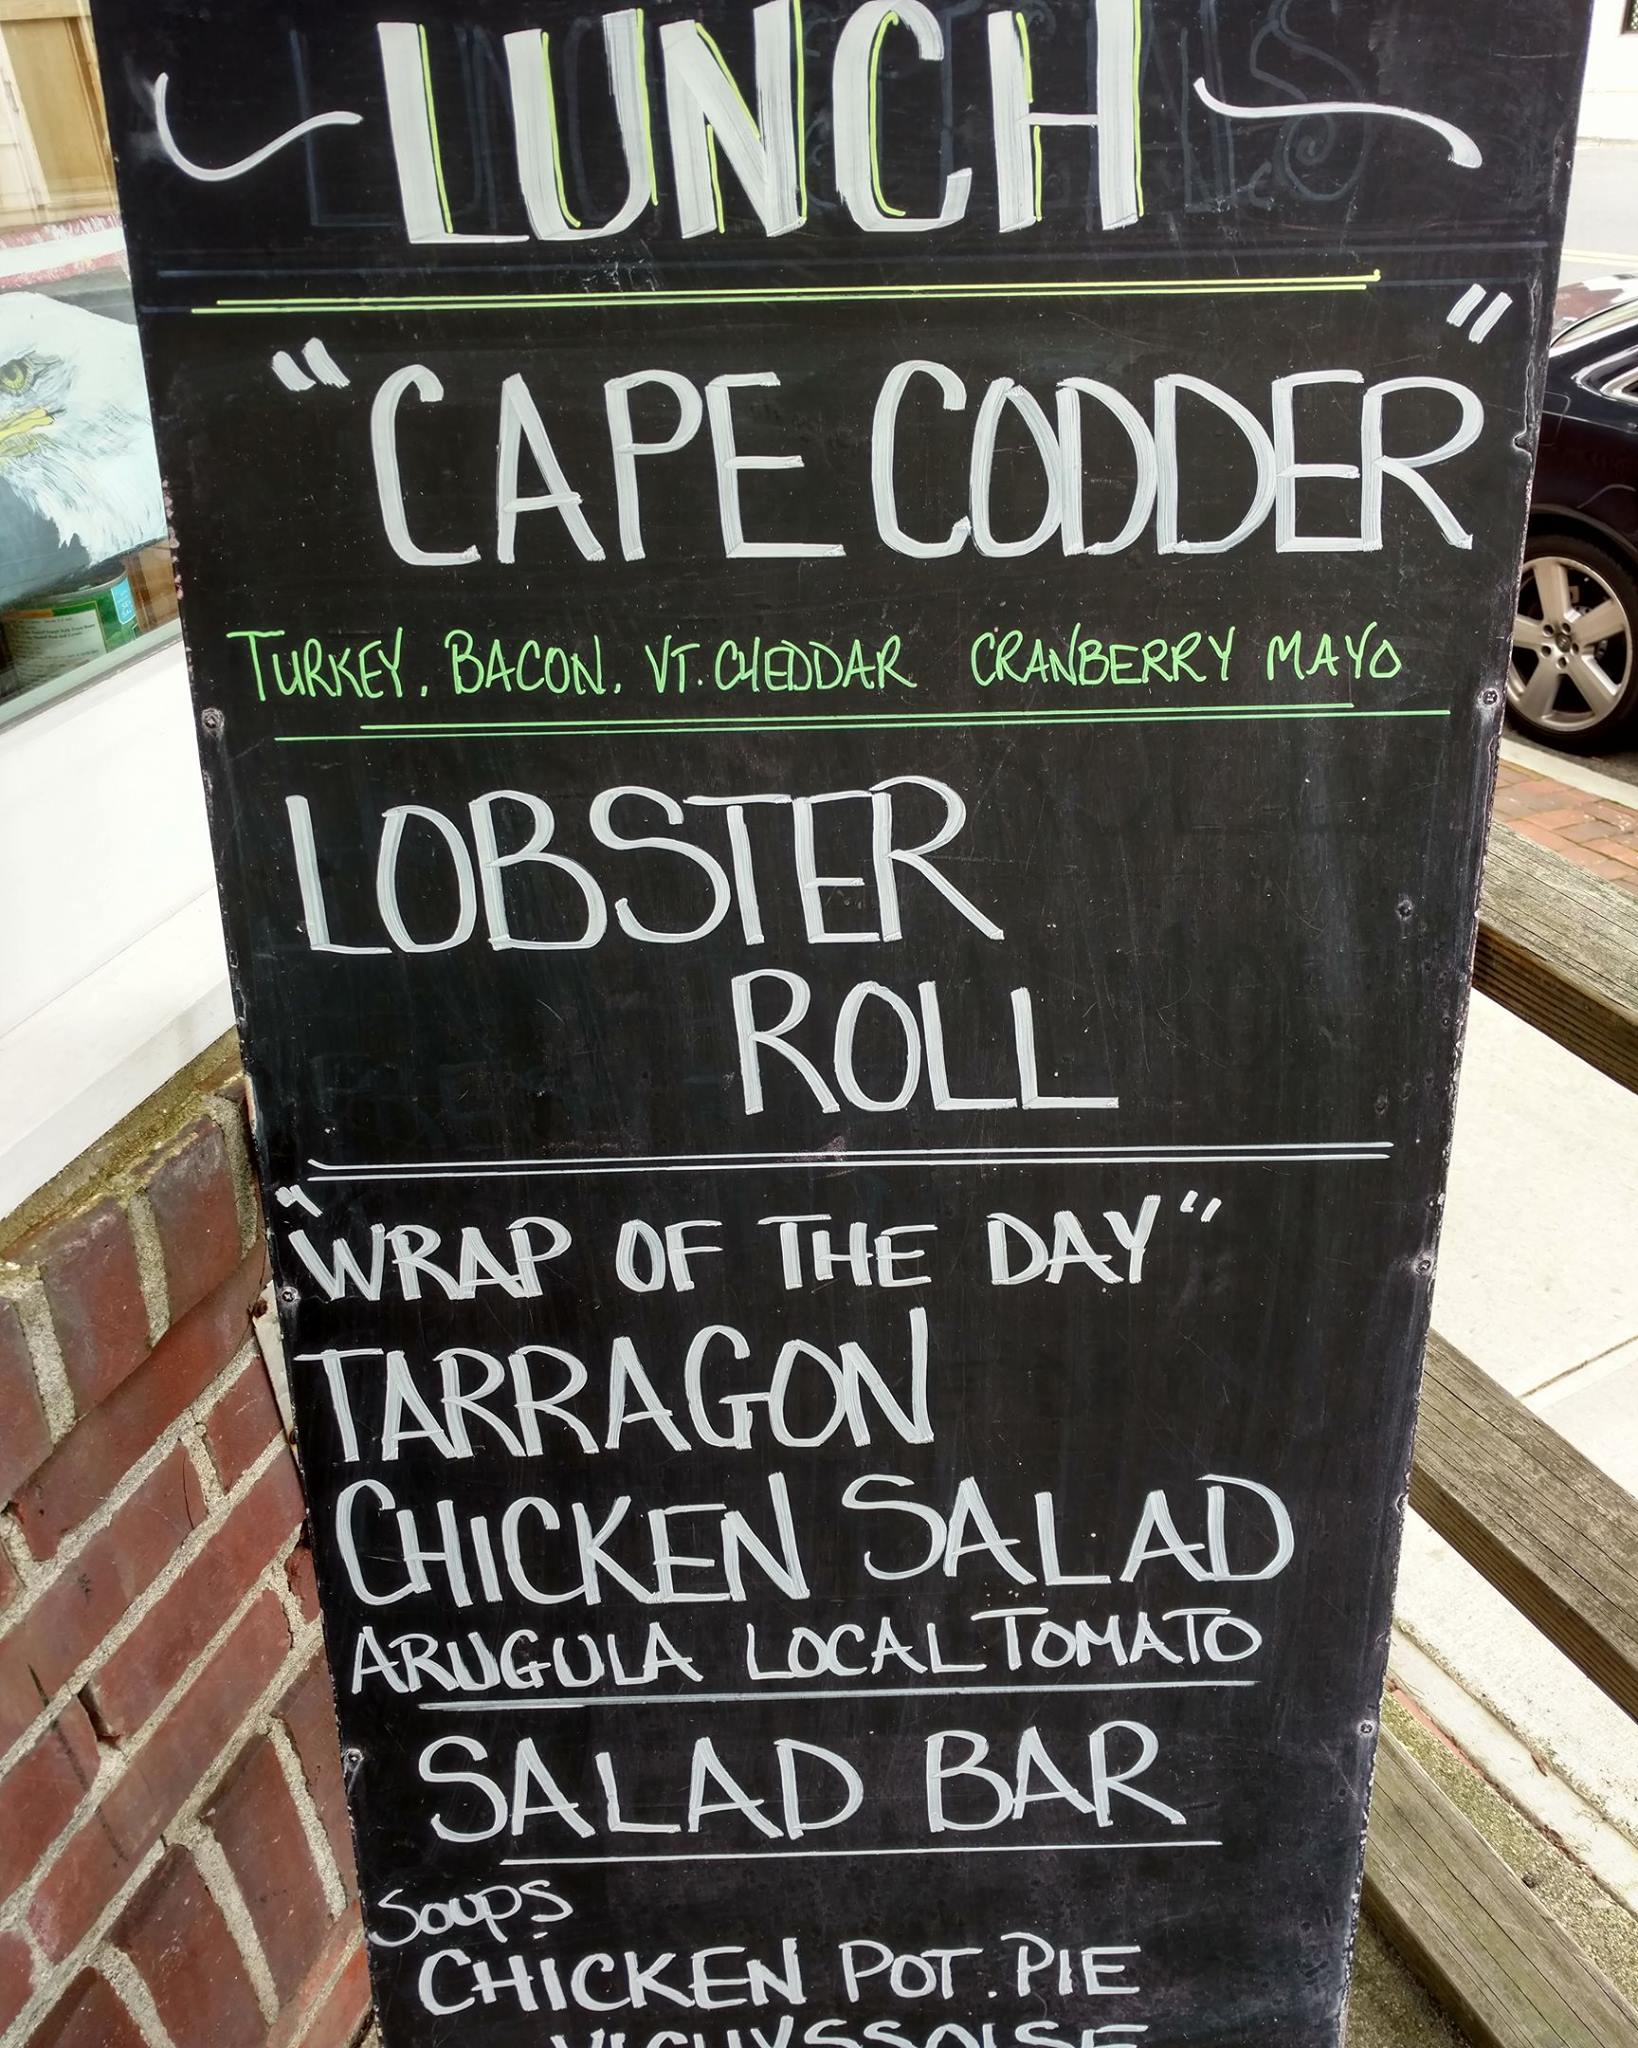 LUNCH
"CAPE CODDER"
TURKEY. BACON. VT. CHEDDAR CRANBERRY MAYO
LOBSTER
ROLL
"WRAP OF THE DAY"
TARRAGON
CHICKEN SALAD
ARUGULA LOCAL TOMATO
SALAD BAR
SOUPS
CHICKEN POT. PIE
VICHYSSOISE